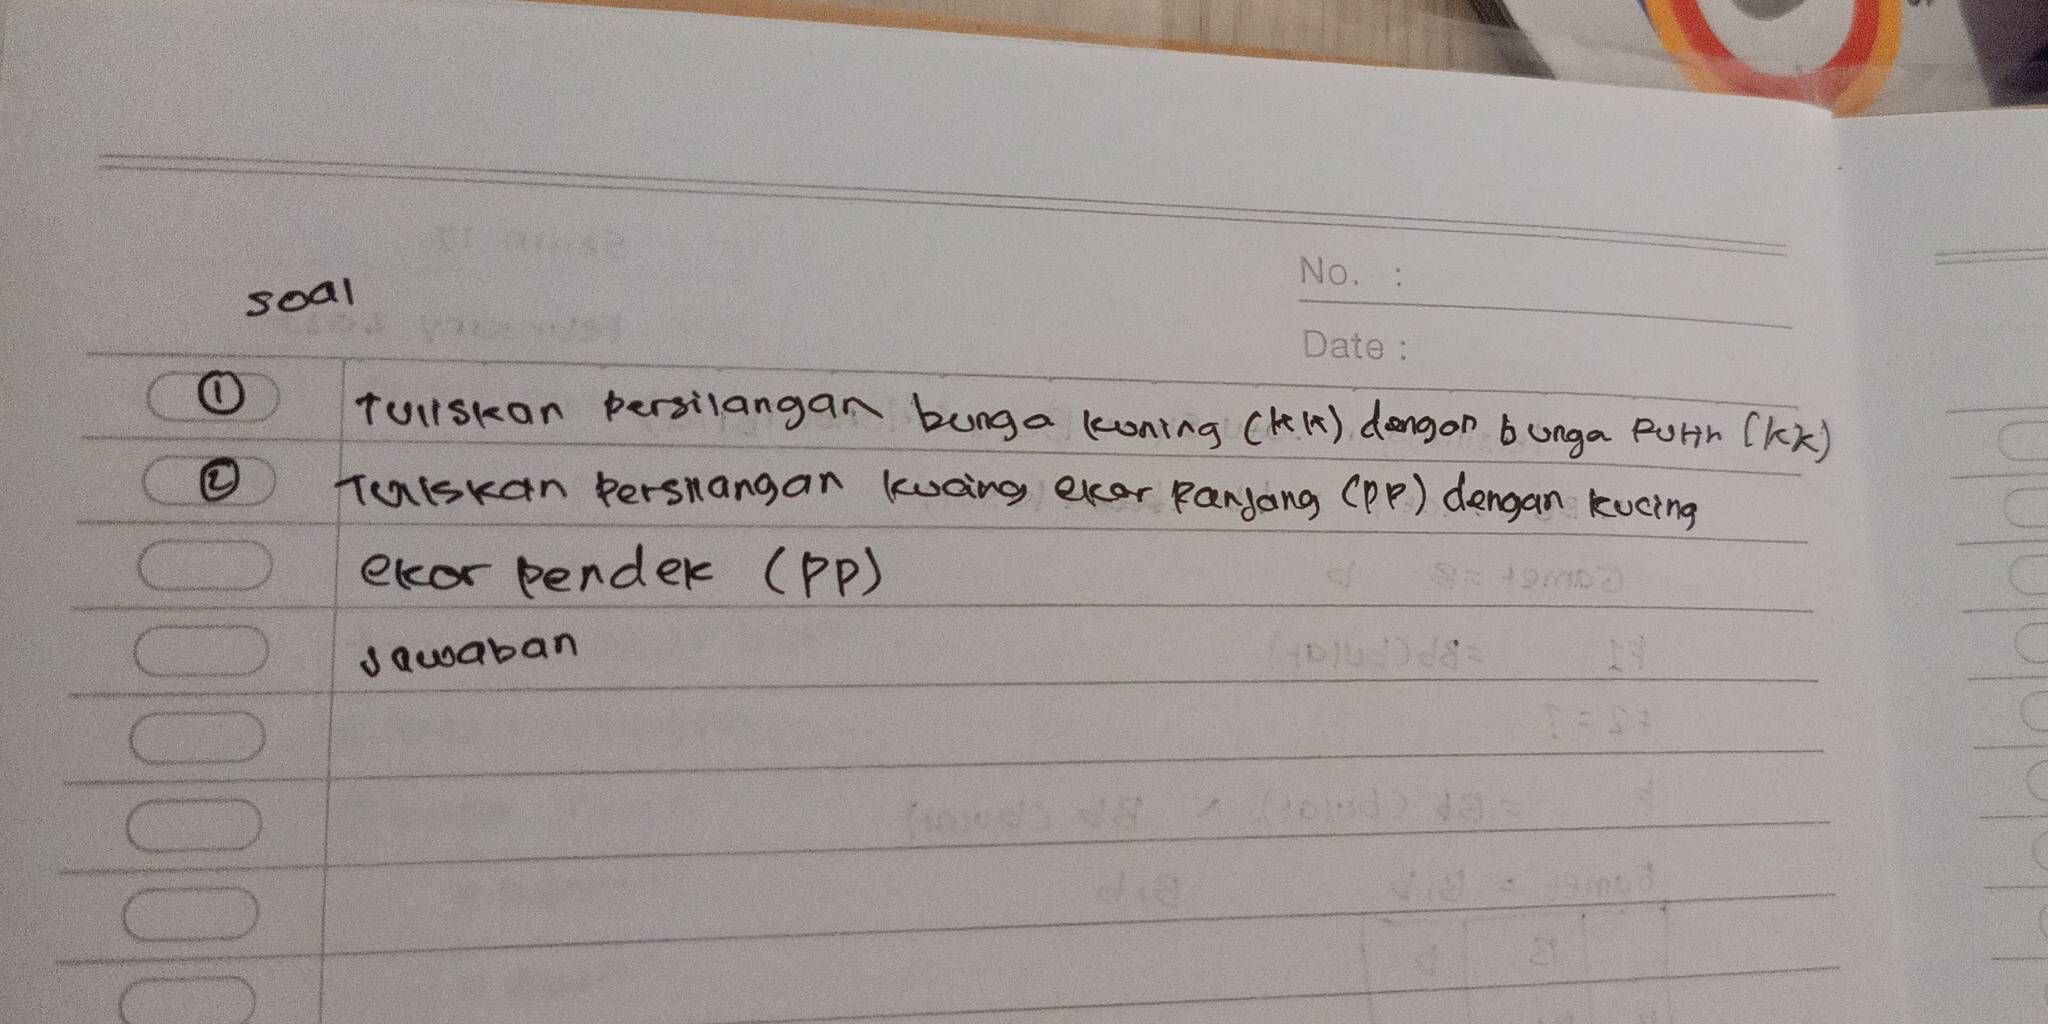 No. :
soal
Date :
① Tuliskan persilangan bunga kuning (KK) dengan bunga putih (kk)
② Tuliskan persilangan kucing ekor panjang (PP) dengan kucing
ekor pendek (pp)
Jawaban